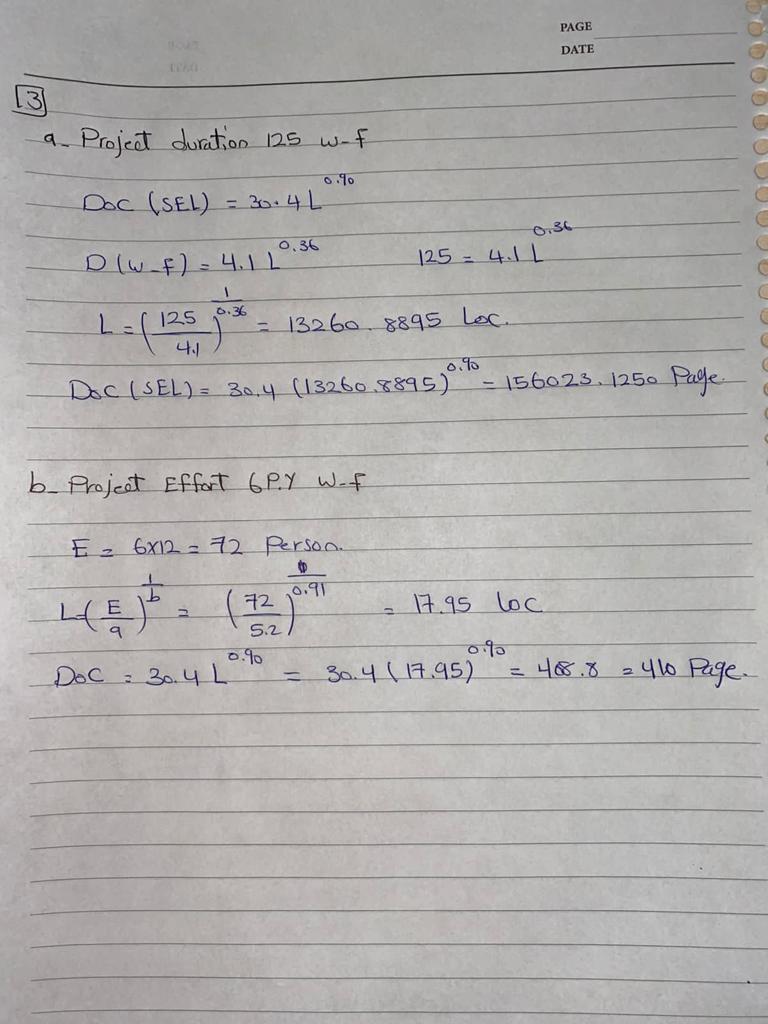 PAGE
DATE
3
a- Project duration 125 w-f
Doc (SEL) = 30.4 L^0.90
D (w-f) = 4.1 L^0.36    125 = 4.1 L^0.36
L = (125/4.1)^(1/0.36) = 13260.8895 Loc.
Doc (SEL) = 30.4 (13260.8895)^0.90 = 156023.1250 Page.
b- Project Effort 6P.Y W-f
E = 6x12 = 72 Person.
L=(E/a)^(1/b) = (72/5.2)^(1/0.91) = 17.95 loc
Doc = 30.4 L^0.90 = 30.4 (17.95)^0.90 = 408.8 = 410 Page.